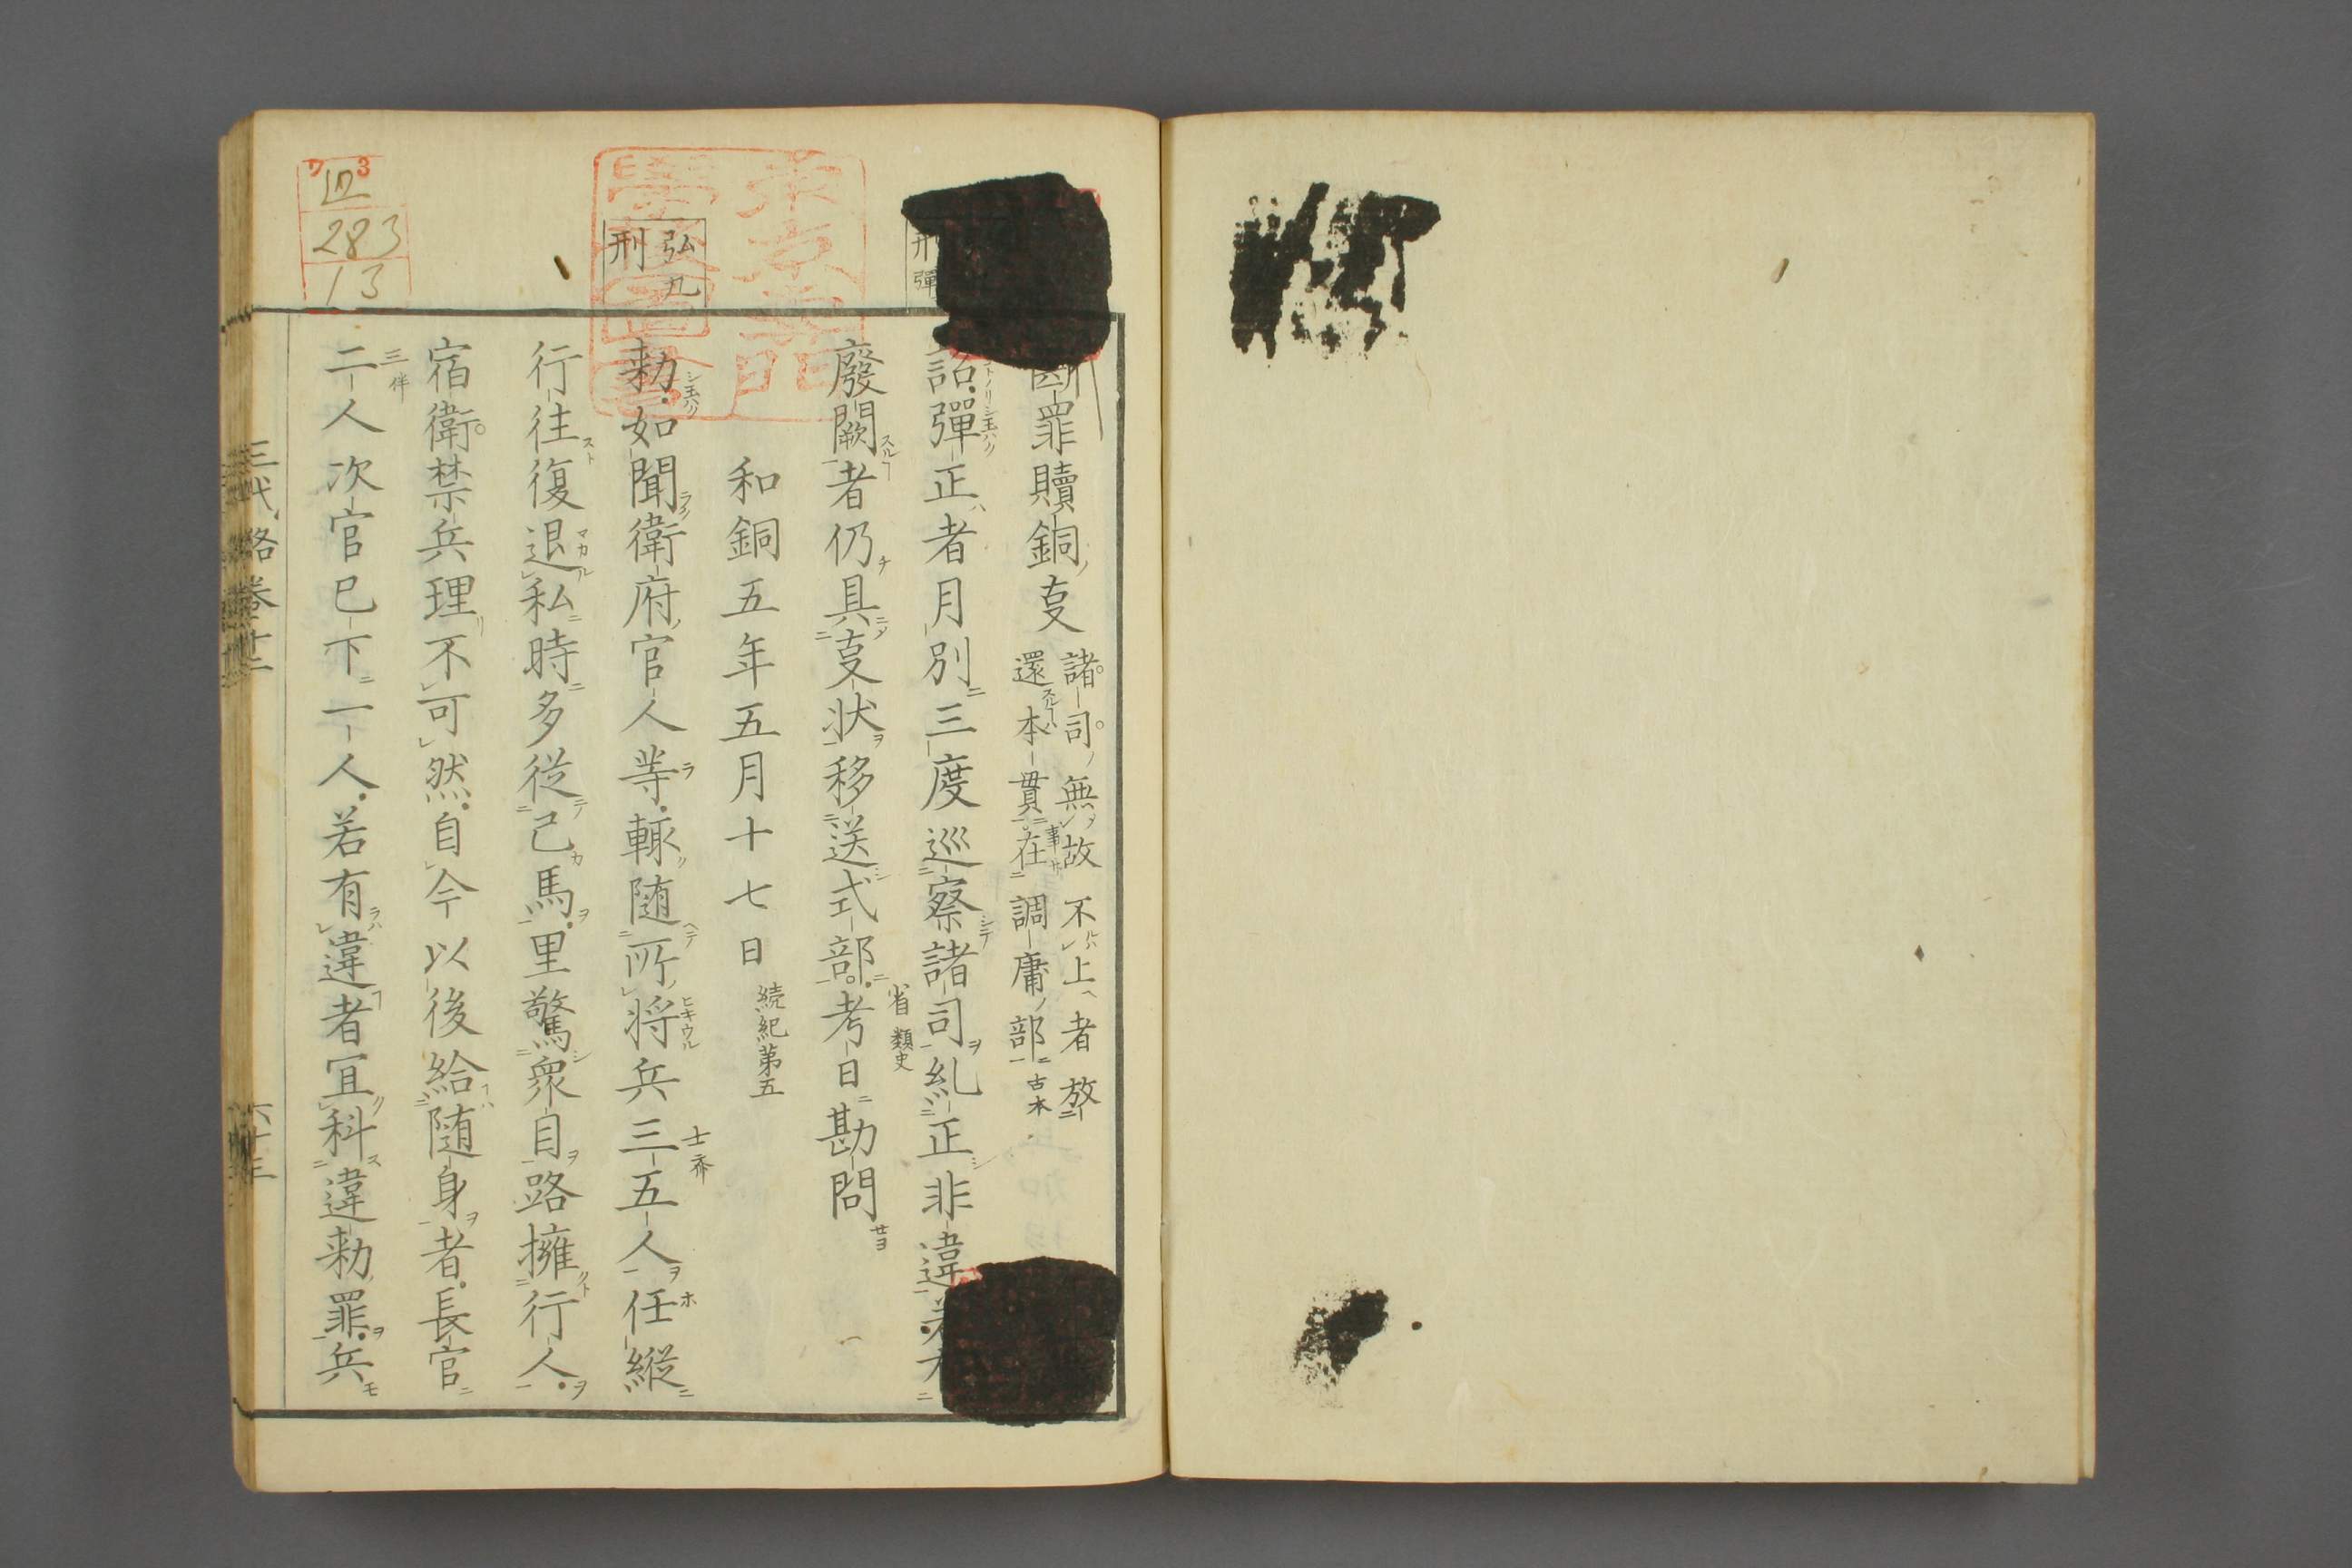 断罪贖銅ノ叓
諸司ノ無故不上者放
還本貫在調庸ノ部 古本
事
詔彈正者月別三度巡察諸司糺正非違若有
廢闕者仍具叓状移送式部考日勘問
省 類史
和銅五年五月十七日 続紀第五
弘九
刑
勅如聞衛府官人等輙随所将兵三五人任縦
士 斎
行往復退私時多従己馬里驚衆自路擁行人
宿衛禁兵理不可然自今以後給随身者長官
三伴
二人次官已下一人若有違者冝科違勅罪兵
刑
彈
三代格巻十二
六十三
四
283
13
東京専門
學校圖書